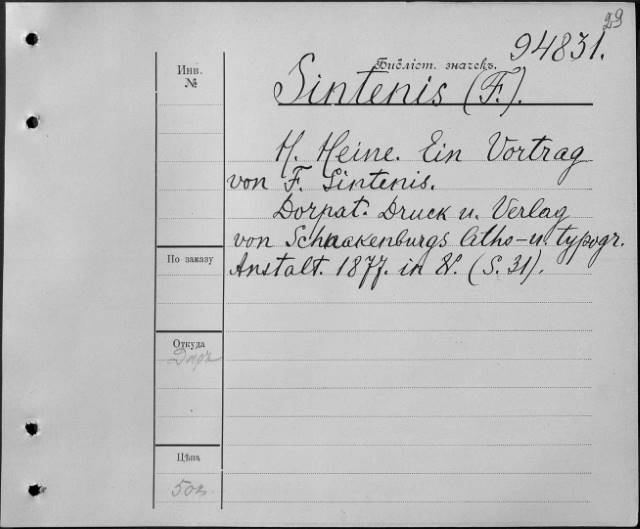 29
94831.
Библіот. значекъ.
Инв.
№
Sintenis (F.).
H. Heine. Ein Vortrag
von F. Sintenis.
Dorpat. Druck u. Verlag
von Schnakenburgs litho- u. typogr.
Anstalt. 1877. in 8. (S. 31).
По заказу
Откуда
Даръ
Цѣна
50к.